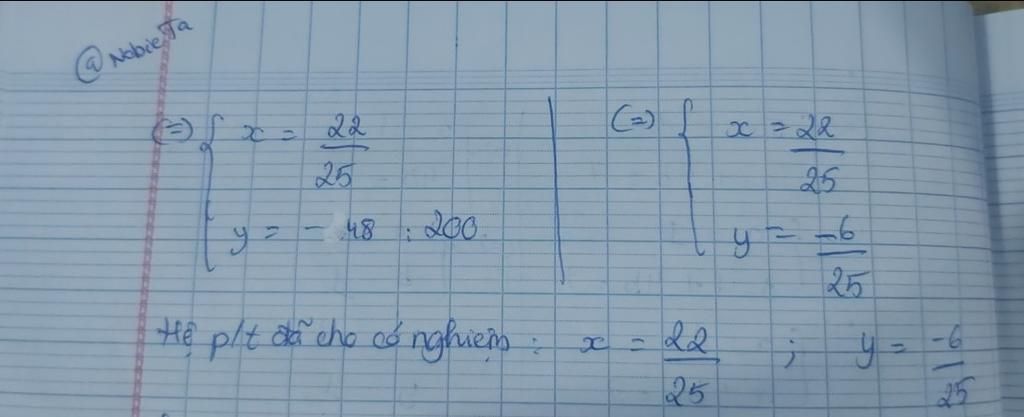 @Nobie Ta
(=) { x = 22/25 | (=) { x = 22/25
y = - 48 : 200 | y = -6/25
Hệ p/t đã cho có nghiệm : x = 22/25 ; y = -6/25